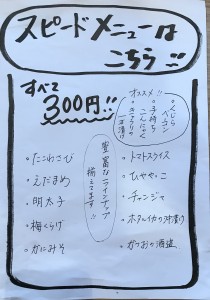 スピードメニューは
こちら!!
すべて
300円!!
オススメ!!
・くじらベーコン
・子持ちこんにゃく
・きゅうりの一本漬け
豊富なラインアップ
揃えてます!!
・たこわさび
・えだまめ
・明太子
・梅くらげ
・かにみそ
・トマトスライス
・ひややっこ
・チャンジャ
・ホタルイカの沖漬け
・かつおの酒盗